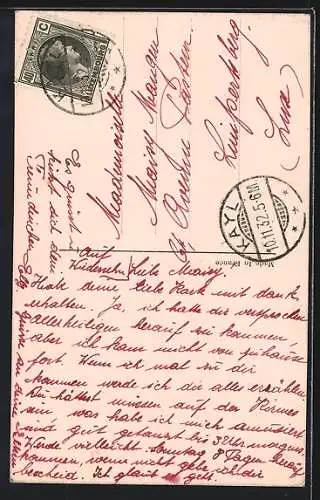 Mademoiselle
Maisy
Avenue Pasteur
Limpertsberg
(Lux)
KAYL
10.11.32.5-6M
Made in France
Es grüsst
Auf
Wiedersehn
Liebe Maisy
Habe deine liebe Karte mit dank
erhalten. Ja, ich hatte dir versprochen
Allerheiligen herauf zu kommen,
aber ich kam nicht von zuhause
fort. Wenn ich mal zu dir
kommen werde ich dir alles erzählen.
Du hättest müssen auf der Kirmes
sein was habe ich mich amusiert
und gut getanzt bis 3 Uhr morgens.
Werde vielleicht Sonntag 8 Tagen herauf
kommen, wenn nicht gebe ich dir
bescheid. Ich glaub es geht.